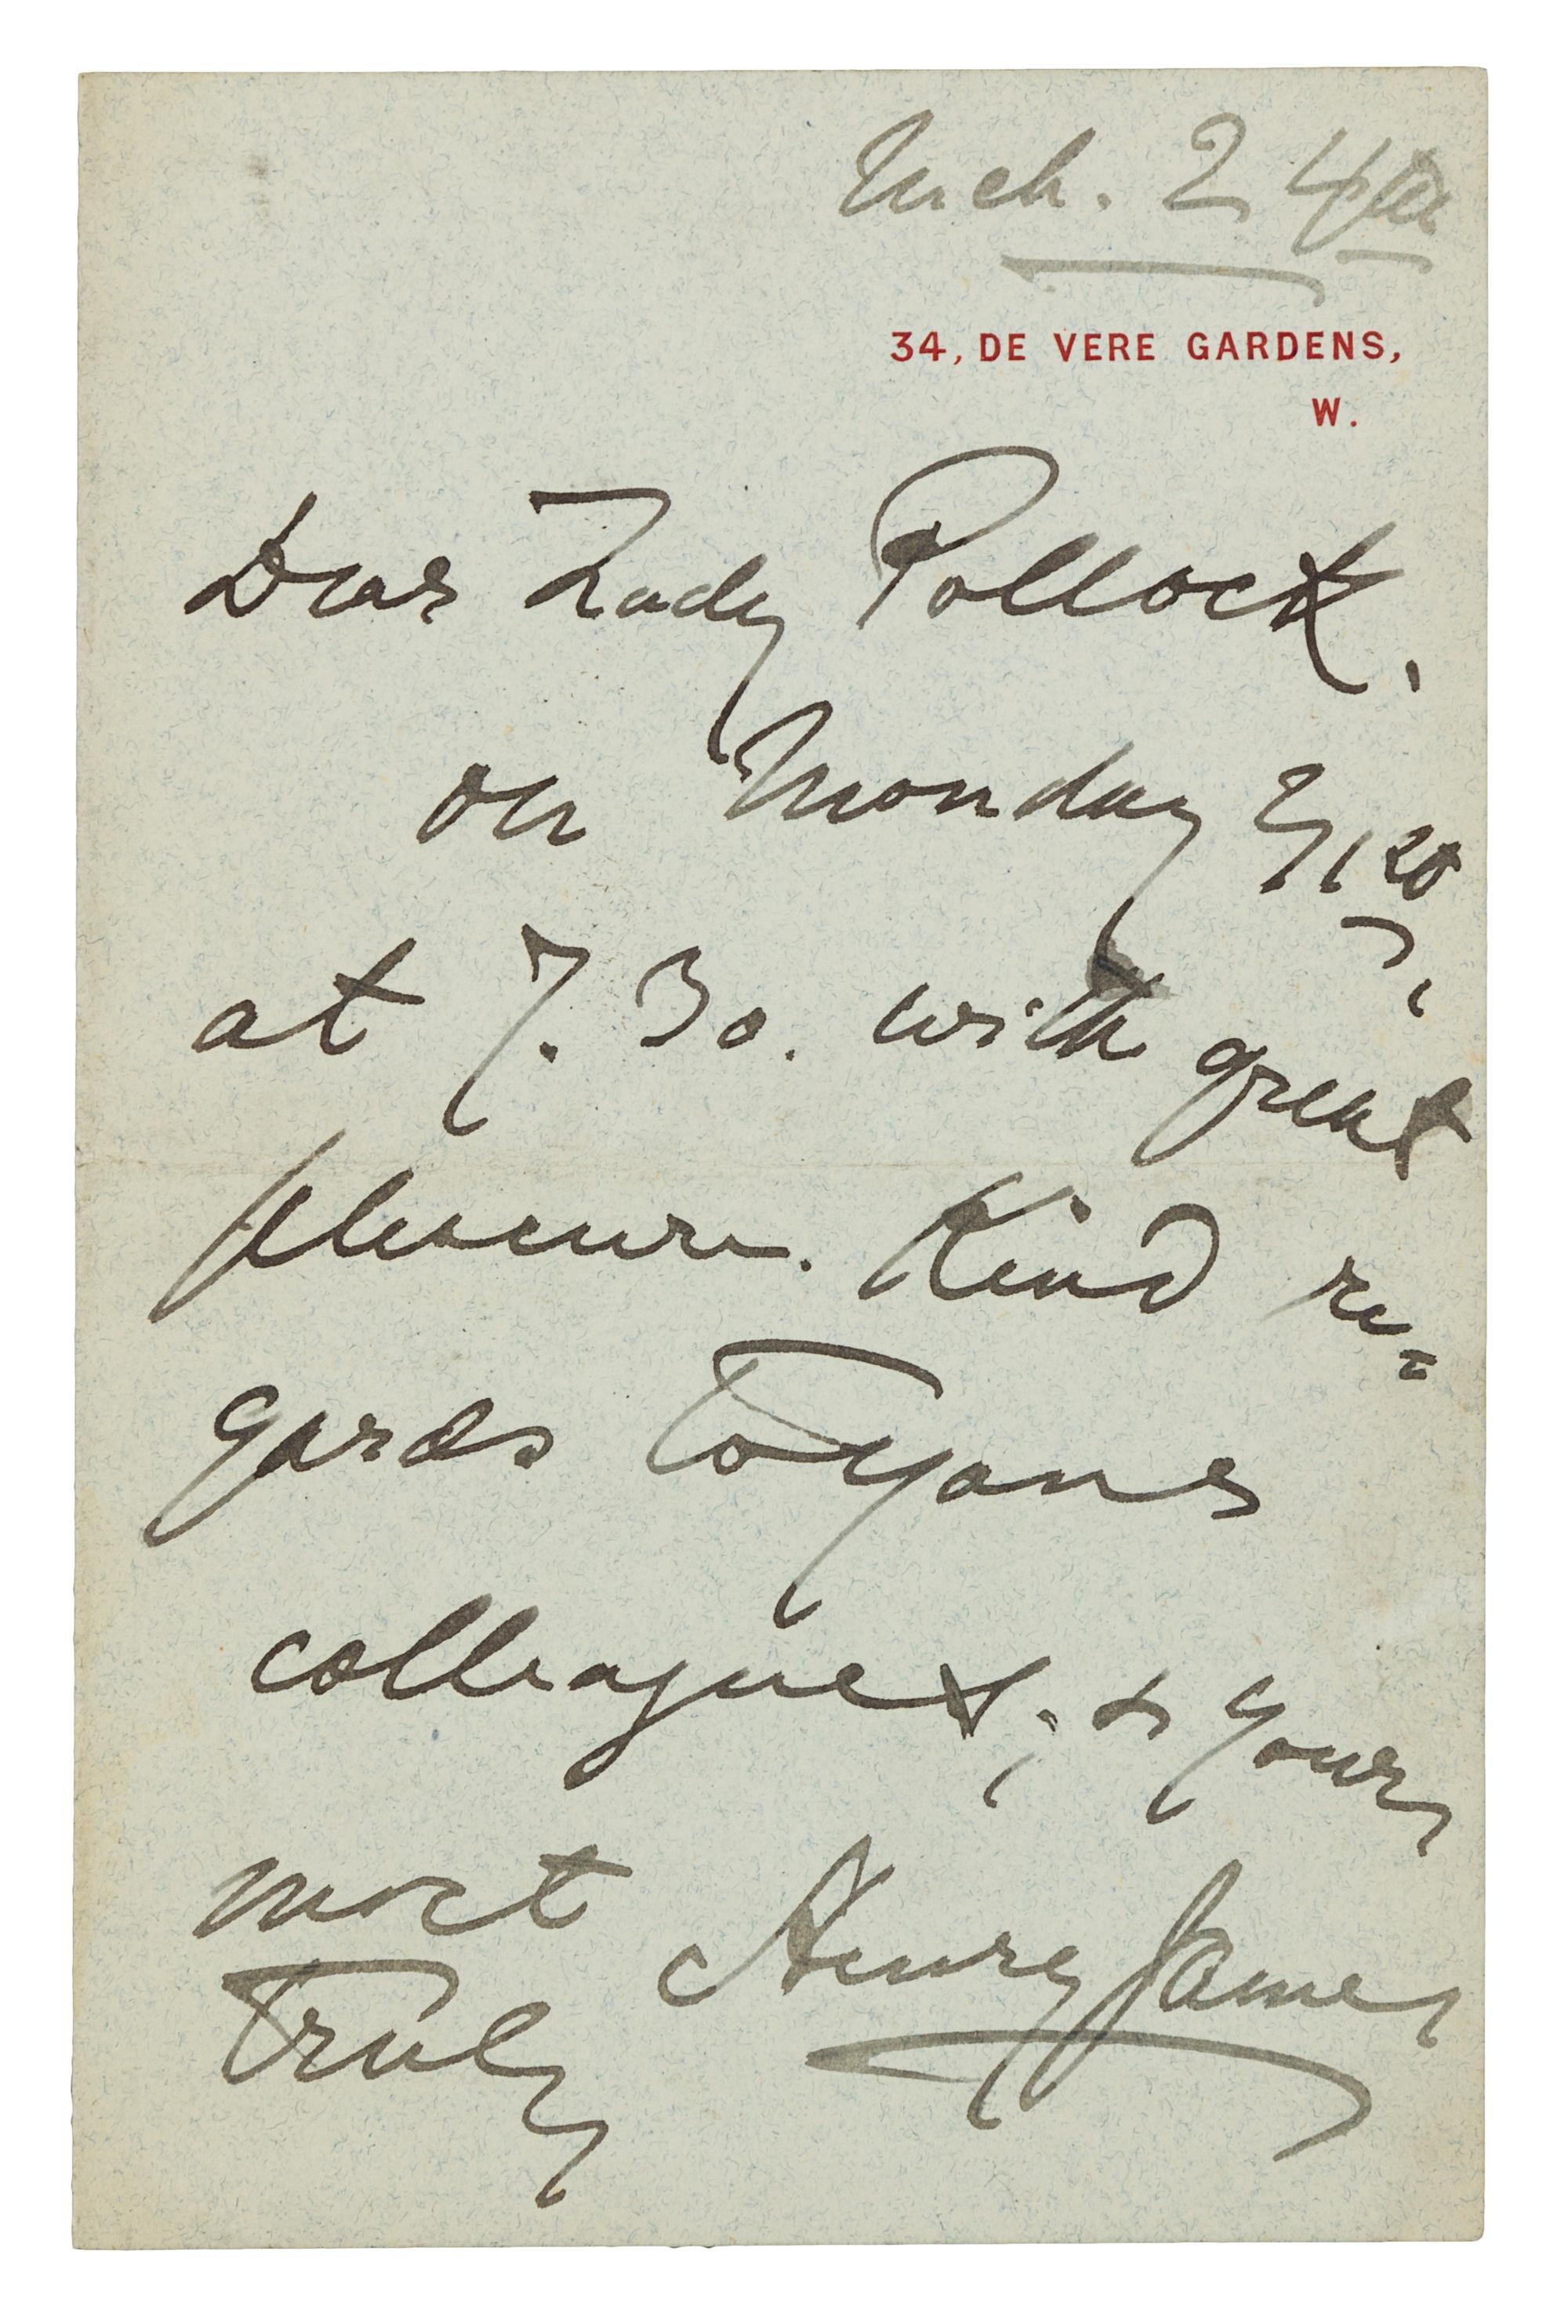 Mch. 24th
34, DE VERE GARDENS,
W.
Dear Lady Pollock,
on Monday 31st,
at 7.30. with great
pleasure. Kind re=
gards to your
colleagues; & yours
most
truly Henry James